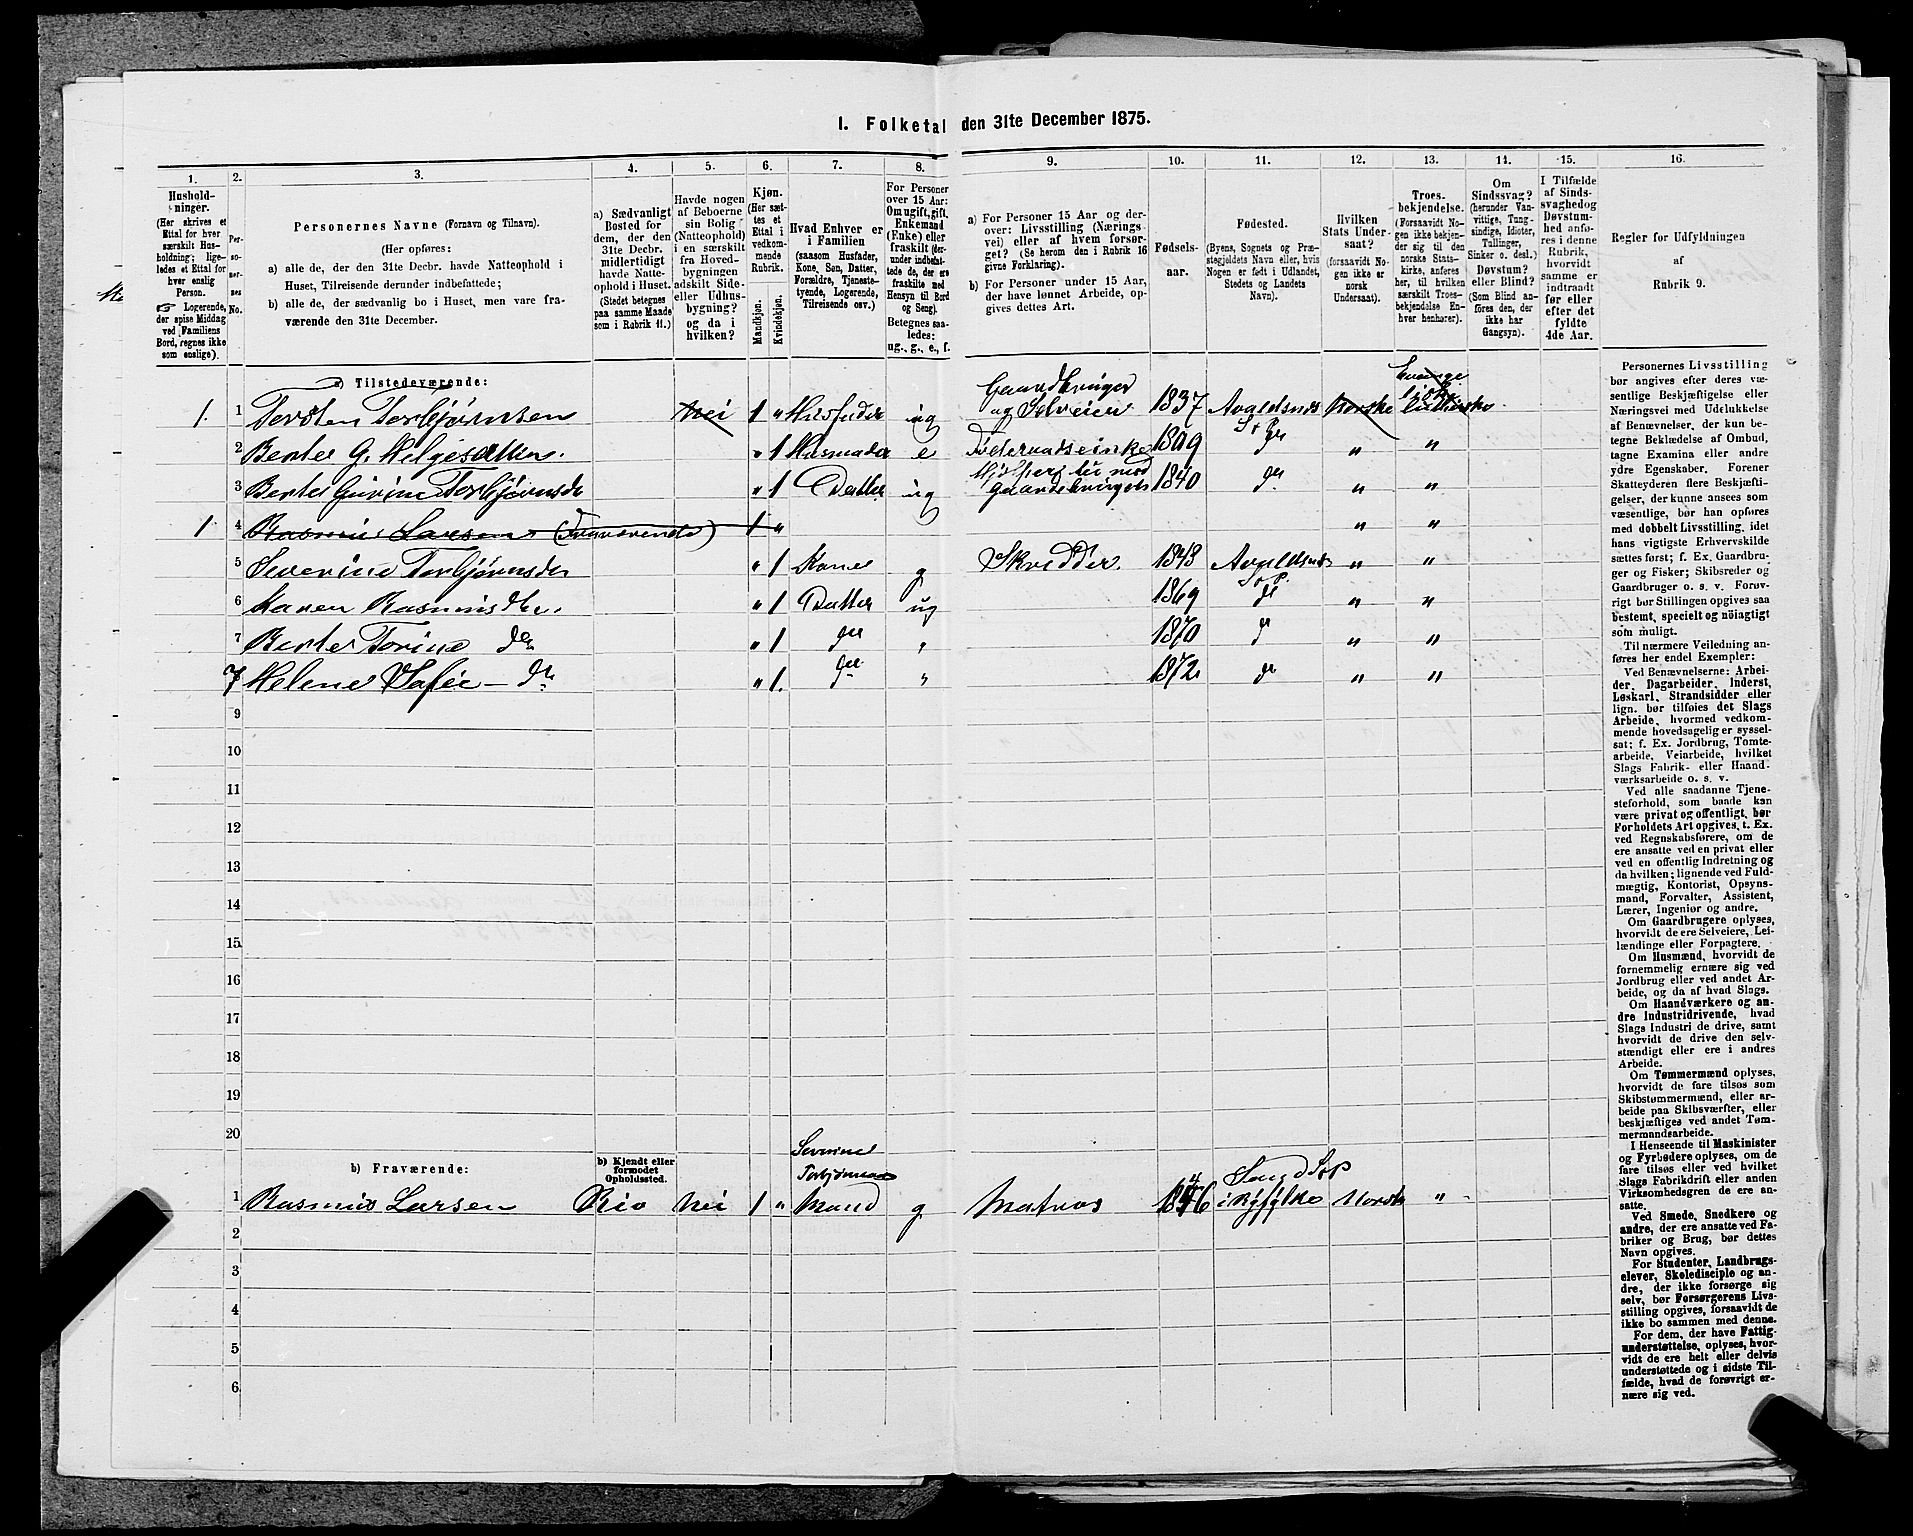 I. Folketal den 31te December 1875.
1. 2. 3. 4. 5. 6. 7. 8. 9. 10. 11. 12. 13. 14. 15. 16.
Hushold-
ninger.
(Her skrives et
Ettal for hver
særskilt Hus-
holdning; lige-
ledes et Ettal for
hver enslig
Person.
Logerende,
der spise Middag
ved Familiens
Bord, regnes ikke
som enslige).
Per-
so-
ner-
nes
No.
Personernes Navne (Fornavn og Tilnavn).
(Her opføres:
a) alle de, der den 31te Decbr. havde Natteophold i
Huset, Tilreisende derunder indbefattede;
b) alle de, der sædvanlig bo i Huset, men vare fra-
værende den 31te December.
a) Sædvanligt
Bosted for
dem, der den
31te Decbr.
midlertidigt
havde Natte-
ophold i Huset.
(Stedet betegnes
paa samme Maade
som i Rubrik 11.)
Havde nogen
af Beboerne
sin Bolig
(Natteophold)
i en særskilt
fra Hoved-
bygningen
adskilt Side-
eller Udhus-
bygning?
og da i
hvilken?
Kjøn.
(Her sæt-
tes et
Ettal i
vedkom-
mende
Rubrik.
Mandkjøn.
Kvindekjøn.
Hvad Enhver er
i Familien
(saasom Husfader,
Kone, Søn, Datter,
Forældre, Tjeneste-
tyende, Logerende,
Tilreisende osv.)
For Personer
over 15 Aar:
Om ugift, gift,
Enkemand
(Enke) eller
fraskilt (der-
under indbefat-
tede de, der ere
fraskilte med
Hensyn til Bord
og Seng).
Betegnes saa-
ledes:
ug., g., e., f.
a) For Personer 15 Aar og der-
over: Livsstilling (Nærings-
vei) eller af hvem forsør-
get? (Se herom den i Rubrik 16
givne Forklaring).
b) For Personer under 15 Aar,
der have lønnet Arbeide, op-
gives dettes Art.
Fødsels-
aar.
Fødested.
(Byens, Sognets og Præ-
stegjeldets Navn eller, hvis
Nogen er født i Udlandet,
Stedets og Landets
Navn).
Hvilken
Stats Under-
saat?
(forsaavidt No-
gen ikke er
norsk
Undersaat).
Troes-
bekjendelse.
(Forsaavidt No-
gen ikke bekjen-
der sig til den
norske Stats-
kirke, anføres
her, til hvilken
særskilt Troes-
bekjendelse En-
hver henhører).
Om
Sindssvag?
(herunder Van-
vittige, Tung-
sindige, Idioter,
Tullinger,
Sinker o. desl.)
Døvstum?
eller Blind?
(Som Blind an-
føres den, der
ikke har
Gangsyn).
I Tilfælde
af Sinds-
svaghed og
Døvstum-
hed anfø-
res i denne
Rubrik,
hvorvidt
samme er
indtraadt
før eller
efter det
fyldte
4de Aar.
Regler for Udfyldningen
af
Rubrik 9.
a) Tilstedeværende:
1. 1 Torsten Torbjørnsen Nei 1 " Husfader ug Gaardbruger og Selveier 1837 Avaldsnes S & P Norske Evange liske lutherske.
2 Berte G. Helgesdtten. " 1 Husmoder e Føderaadsenke 1809 dr " "
3 Berte Gurine Torbjørnsdr " 1 Datter ug Hjelper til med Gaardsbruget 1840 dr " "
1 4 Rasmus Larsen (Fraværende) 1 " " "
5 Severine Torbjørnsdr " 1 Kone g Skrædder. 1848 Avaldsnes S & P. " "
6 Karen Rasmusdtr. " 1 Datter ug 1869 dr " "
7 Berte Torine dr " 1 do " 1870 dr " "
7 Helene Sofie - dr " 1. do " 1872 dr " "
9
10
11
12
13
14
15
16
17
18
19
20
b) Fraværende:
b) Kjendt eller
formodet
Opholdssted.
1 Rasmus Larsen Rio Nei 1 " Severine Torbjørnsens Mand g Matros 1846 Sand S & P i Ryfylke Norsk "
2
3
4
5
6
Personernes Livsstilling
bør angives efter deres væ-
sentlige Beskjæftigelse eller
Næringsvei med Udelukkelse
af Benævnelser, der kun be-
tegne Beklædelse af Ombud,
tagne Examina eller andre
ydre Egenskaber. Forener
Skatteyderen flere Beskjæfti-
gelser, der kunne ansees som
væsentlige, bør han opføres
med dobbelt Livsstilling, idet
hans vigtigste Erhvervskilde
sættes først; f. Ex. Gaardbru-
ger og Fisker; Skibsreder og
Gaardbruger o. s. v. Forøv-
rigt bør Stillingen opgives saa
bestemt, specielt og nöiagtigt
som muligt.
Til nærmere Veiledning an-
føres her endel Exempler:
Ved Benævnelserne: Arbei-
der, Dagarbeider, Inderst,
Løskarl, Strandsidder eller
lign. bør tilføies det Slags
Arbeide, hvormed vedkom-
mende hovedsagelig er syssel-
sat; f. Ex. Jordbrug, Tomte-
arbeide, Veiarbeide, hvilket
Slags Fabrik- eller Haand-
værksarbeide o. s. v.
Ved alle saadanne Tjene-
steforhold, som baade kan
være privat og offentligt, bør
Forholdets Art opgives, t. Ex.
ved Regnskabsførere, om de
ere ansatte ved en privat eller
ved en offentlig Indretning og
da hvilken; lignende ved Fuld-
mægtig, Kontorist, Opsyns-
mand, Forvalter, Assistent,
Lærer, Ingeniør og andre.
Om Gaardbrugere oplyses,
hvorvidt de ere Selveiere, Lei-
lændinge eller Forpagtere.
Om Husmænd, hvorvidt de
fornemmelig ernære sig ved
Jordbrug eller ved andet Ar-
beide, og da af hvad Slags.
Om Haandværkere og an-
dre Industridrivende, hvad
Slags Industri de drive, samt
hvorvidt de drive den selv-
stændigt eller ere i andres
Arbeide.
Om Tømmermænd oplyses,
hvorvidt de fare tilsøs som
Skibstømmermænd, eller ar-
beide paa Skibsværfter, eller
beskjæftiges ved andet Tøm-
mermandsarbeide.
I Henseende til Maskinister
og Fyrbødere oplyses, om de
fare tilsøs eller ved hvilket
Slags Fabrikdrift eller anden
Virksomhedsgren de ere an-
satte.
Ved Smede, Snedkere og
andre, der ere ansatte ved Fa-
briker og Brug, bør dettes
Navn opgives.
For Studenter, Landbrugs-
elever, Skoledisciple og an-
dre, der ikke forsørge sig
selv, bør Forsørgerens Livs-
stilling opgives, forsaavidt de
ikke bo sammen med denne.
For dem, der have Fattig-
understøttelse, oplyses, hvor-
vidt de ere helt eller delvis
understøttede og i sidste Til-
fælde, hvad de forøvrigt er-
nære sig ved.